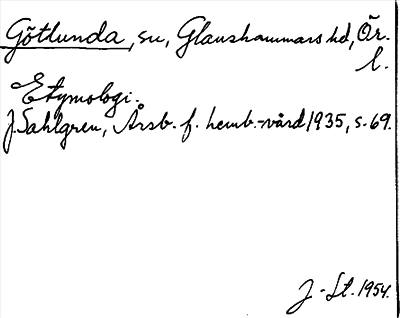 Götlunda, sn, Glanshammars hd, Ör.
l.
Etymologi.
J. Sahlgren, Årsb. f. hemb.-vård 1935, s. 69.
J-St. 1954.